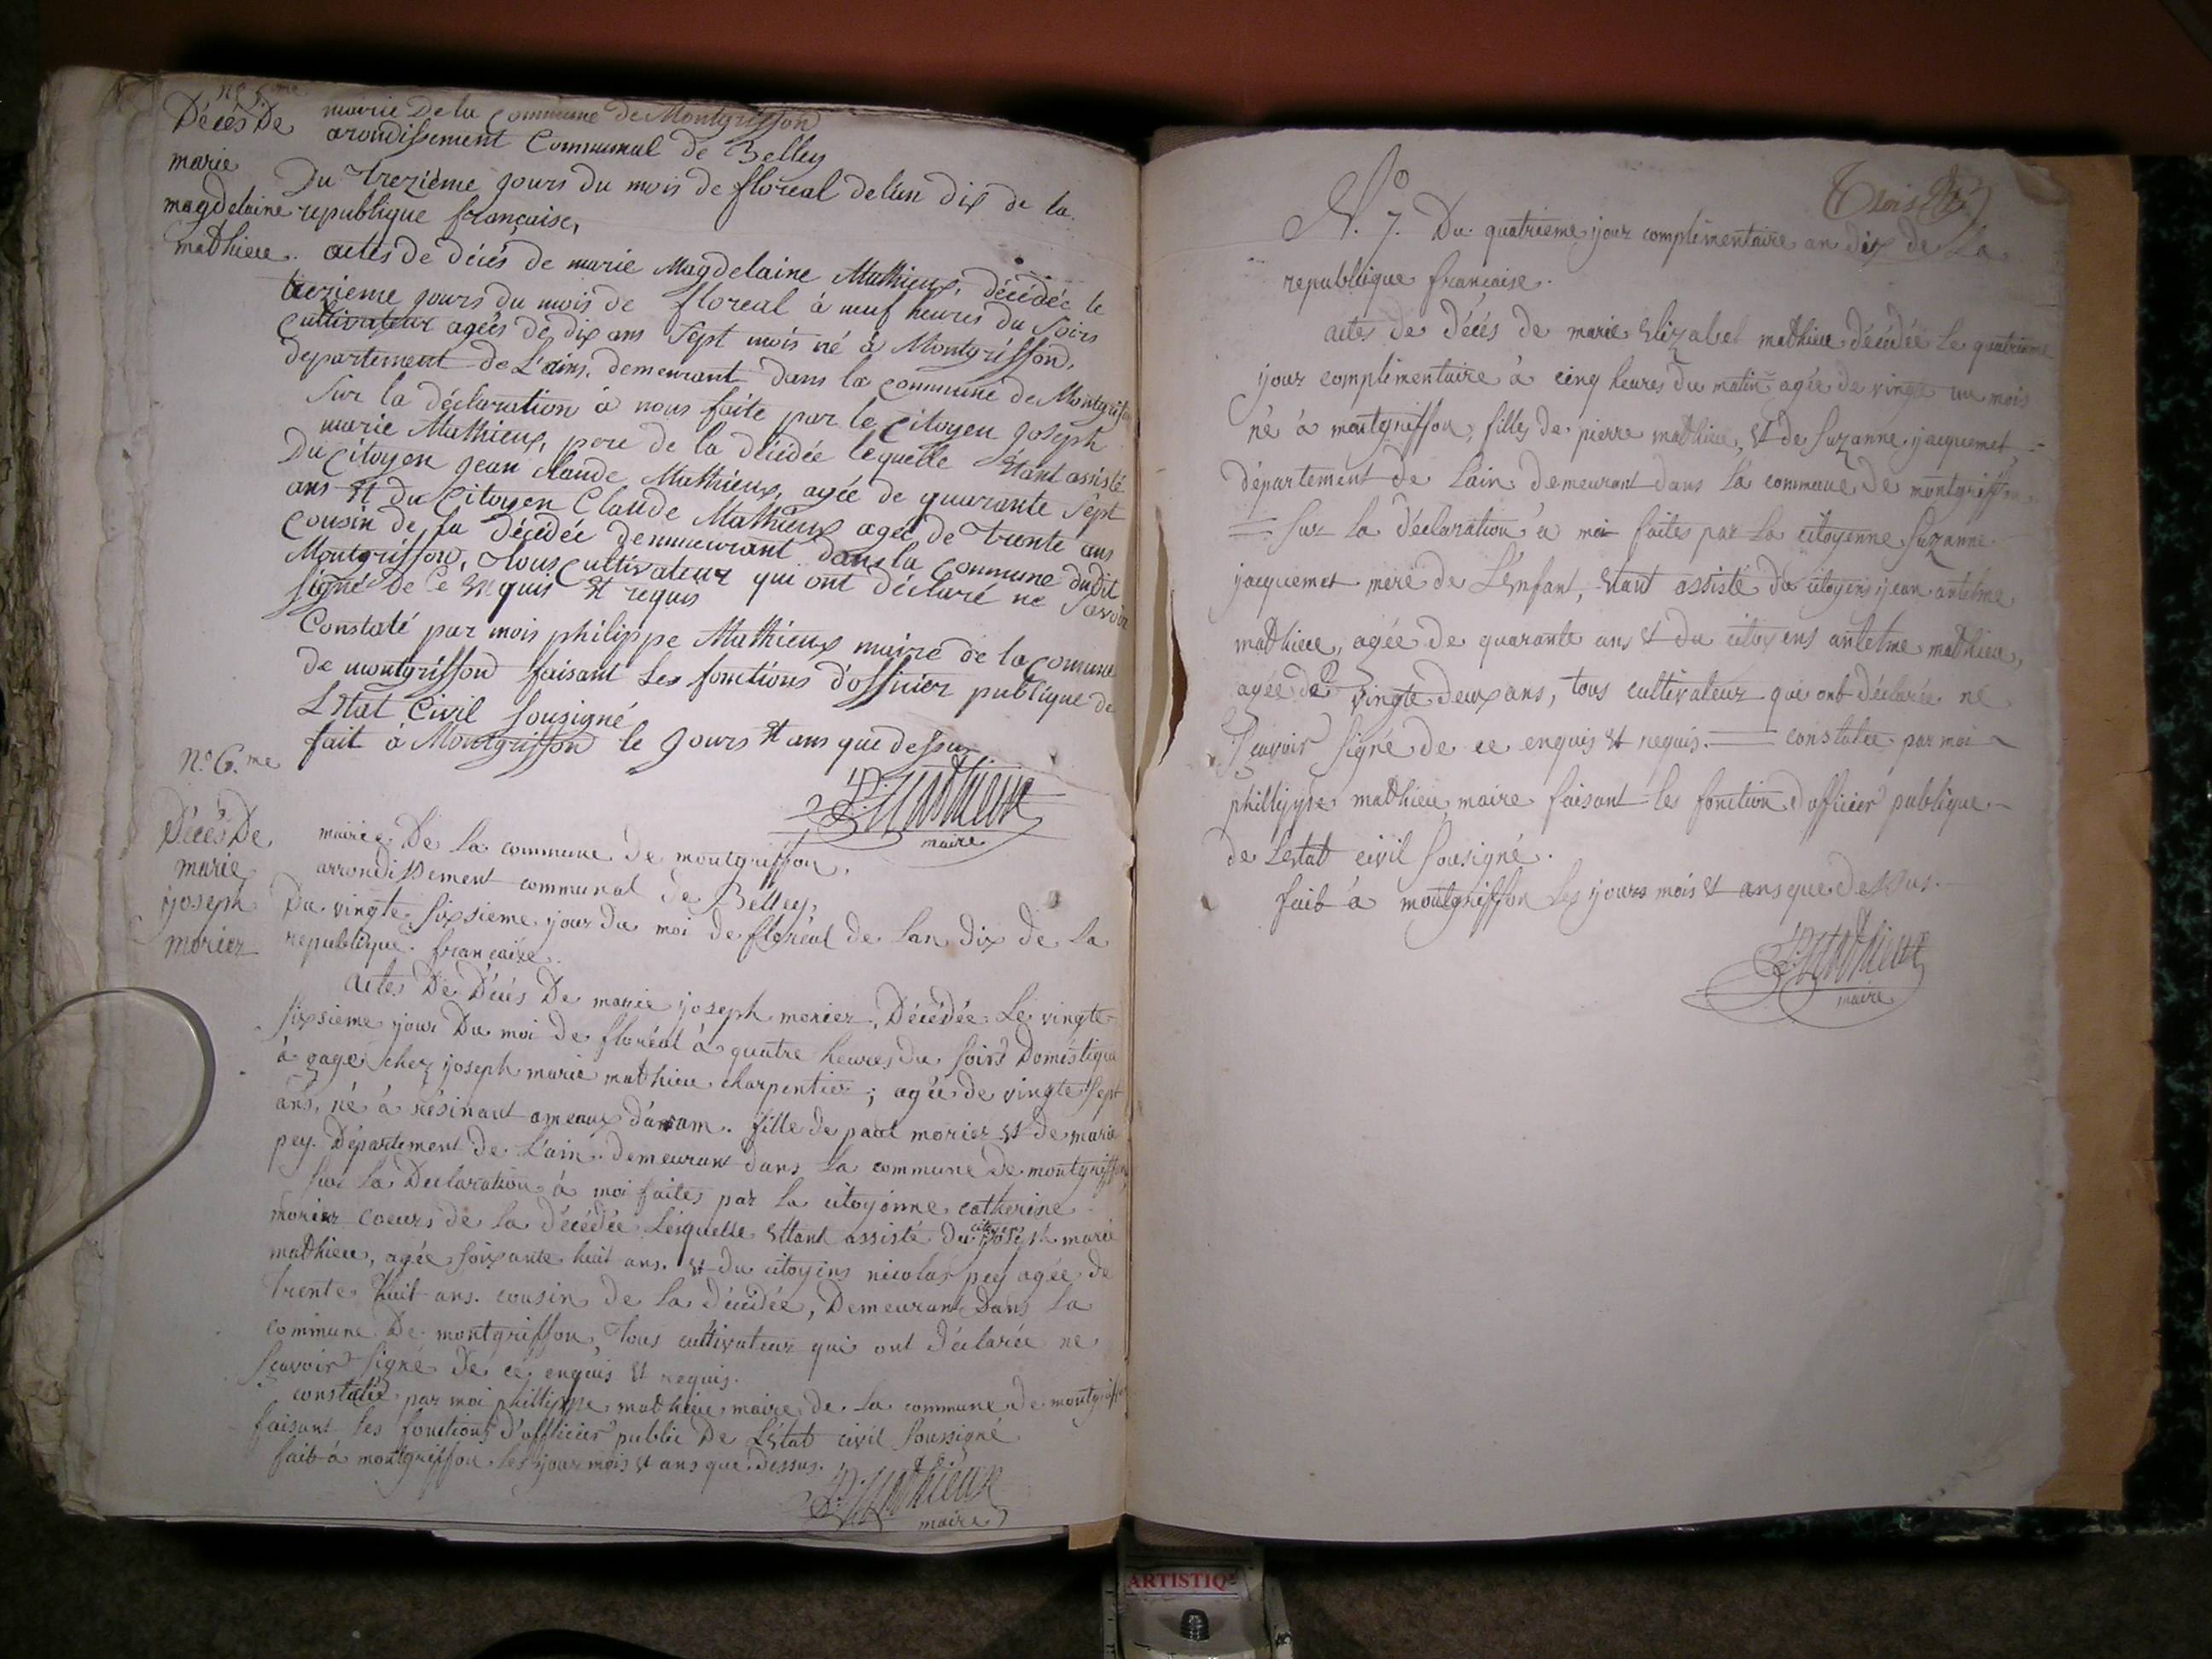 N° 5me
Décés De
marie
magdelaine
mathieu.
mairie De la Commune de Montgriffon
arondissement Communal de Belley
Du trezième jours du mois de floreal de lan dix de la
republique française,
actes de décés de marie Magdelaine Mathieux, décédée le
trezieme jours du mois de floreal à neuf heures du Soirs
cultivateur agées de dix ans Sept mois né à Montgriffon,
departement de L'ains. demeurant dans la commune de Montgriffon
Sur la déclaration à nous faite par le Citoyen Joseph
marie Mathieux, pere de la décédée lequelle Étant assisté
Du Citoyen Jean Claude Mathieux, agée de quarante Sept
ans Et du Citoyen Claude Mathieux agée de trente ans
Cousin de la décédée demmeurant dans la commune dudit
Montgriffon, tous Cultivateur qui ont déclaré ne Savoir
Signé de Ce Enquis Et requis
Constaté par mois philippe Mathieux maire de la Comune
de montgriffon faisant Les fonctions d'officier publique de
L'Etat Civil Sousigné
fait à Montgriffon le Jours Et ans que dessus
P. Mathieux
maire
N° 6.me
Décés De
marie
joseph
morier
mairie De la commune de montgriffon,
arrondissement communal de Belley,
Du vingte sixsieme jour du moi de floréal de lan dix de la
republique française.
actes De Décés De marie joseph morier, Décédée Le vingte
sixsieme jour Du moi de floréal à quatre heures du soirs Doméstique
à gage chez joseph marie mathieu charpentier; agée de vingte Sept
ans, né à résinant ameaux d'aram. fille de paul morier Et de marie
pey. Département de L'ain. demeurant dans la commune de montgriffon
sur la Declaration à moi faites par la citoyenne catherine
morier coeurs de la décédée Lesquelle Ettant assisté du citoyen joseph marie
mathieu, agée soixante huit ans. Et du citoyens nicolas pey agée de
trente huit ans. cousin de la décédée, Demeurant Dans la
commune De montgriffon, tous cultivateur qui ont déclarée ne
sçavoir signé De ce enquis Et requis.
constatée par moi phillippe mathieu maire de la commune de montgriffon
faisant les fonctions d'officier public De L'Etat civil soussigné
fait à montgriffon les jour mois Et ans que dessus.
P. Mathieux
maire
Trois
N.° 7. Du quatrieme jour complimentaire an dix de La
republique française.
actes de Décés de marie Elizabet mathieu décédée Le quatrieme
jour complimentaire à cinq heures du matin agée de vingt un mois
né à montgriffon, filles de pierre mathieu, Et de Suzanne jacquemet =
département de L'ain demeurant dans la commune de montgriffon.
= sur la déclaration à moi faites par la citoyenne Suzanne
jacquemet mere de L'Enfant, Etant assisté du citoyens jean antelme
mathieu, agée de quarante ans Et du citoyens antelme mathieu,
agée de vingte deux ans, tous cultivateur qui ont déclarée ne
Sçavoir signé de ce enquis Et requis. = constatée par moi
phillippe mathieu maire faisant les fonction d'officier publique
de L'etat civil Sousigné.
fait à montgriffon les jours mois Et ans que dessus.
P. Mathieux
maire
ARTISTIQ